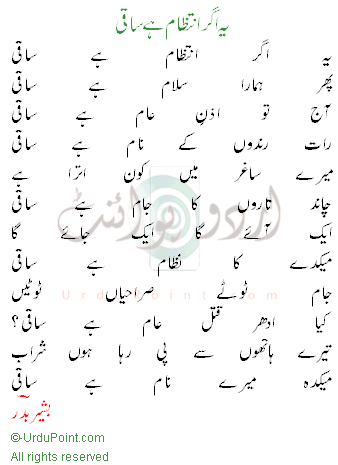 یہ اگر انتظام ہے ساقی
یہ اگر انتظام ہے ساقی
پھر ہمارا سلام ہے ساقی
آج تو اذنِ عام ہے ساقی
رات رندوں کے نام ہے ساقی
میرے ساغر میں کون اترا ہے
چاند تاروں کا جام ہے ساقی
ایک آئے گا ایک جائے گا
میکدے کا نظام ہے ساقی
جام ٹوٹے صراحیاں ٹوٹیں
کیا ادھر قتل عام ہے ساقی؟
تیرے ہاتھوں سے پی رہا ہوں شراب
میکدہ میرے نام ہے ساقی
بشیر بدر
اردو پوائنٹ
UrduPoint.com
©-UrduPoint.com
All rights reserved